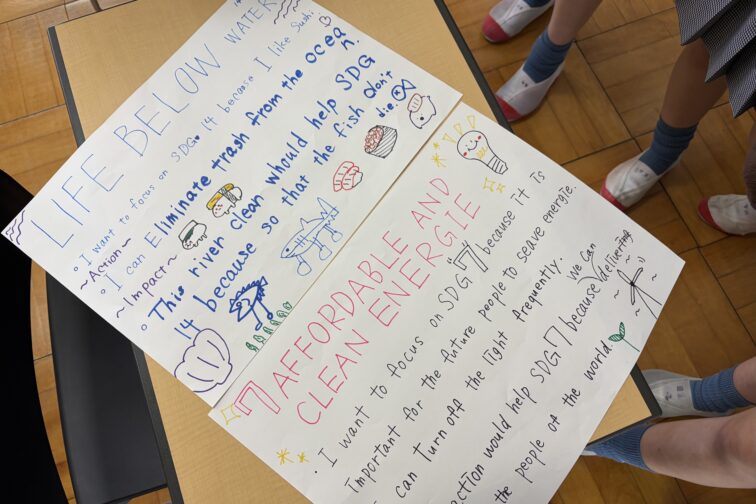 LIFE BELOW WATER
• I want to focus on SDG 14 because I like Sushi.
• I can Eliminate trash from the ocean.
~Action~
~Impact~
• This river clean whould help SDG
14 because so that the fish don't
die.
7 AFFORDABLE AND
CLEAN ENERGIE
• I want to focus on SDG "7" because it is
important for the future people to seave energie.
can Turn off the light frequently.
action would help SDG 7 because We can delivering
the people of the world.